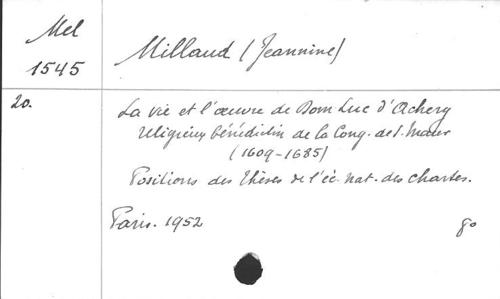 Mel
1545
Millaud (Jeannine)
20.
La vie et l'œuvre de Dom Luc d'Achery
religieux bénédictin de la Cong. de S. Maur
(1609-1685)
Positions des Thèses de l'éc. nat. des chartes.
Paris. 1952
8o